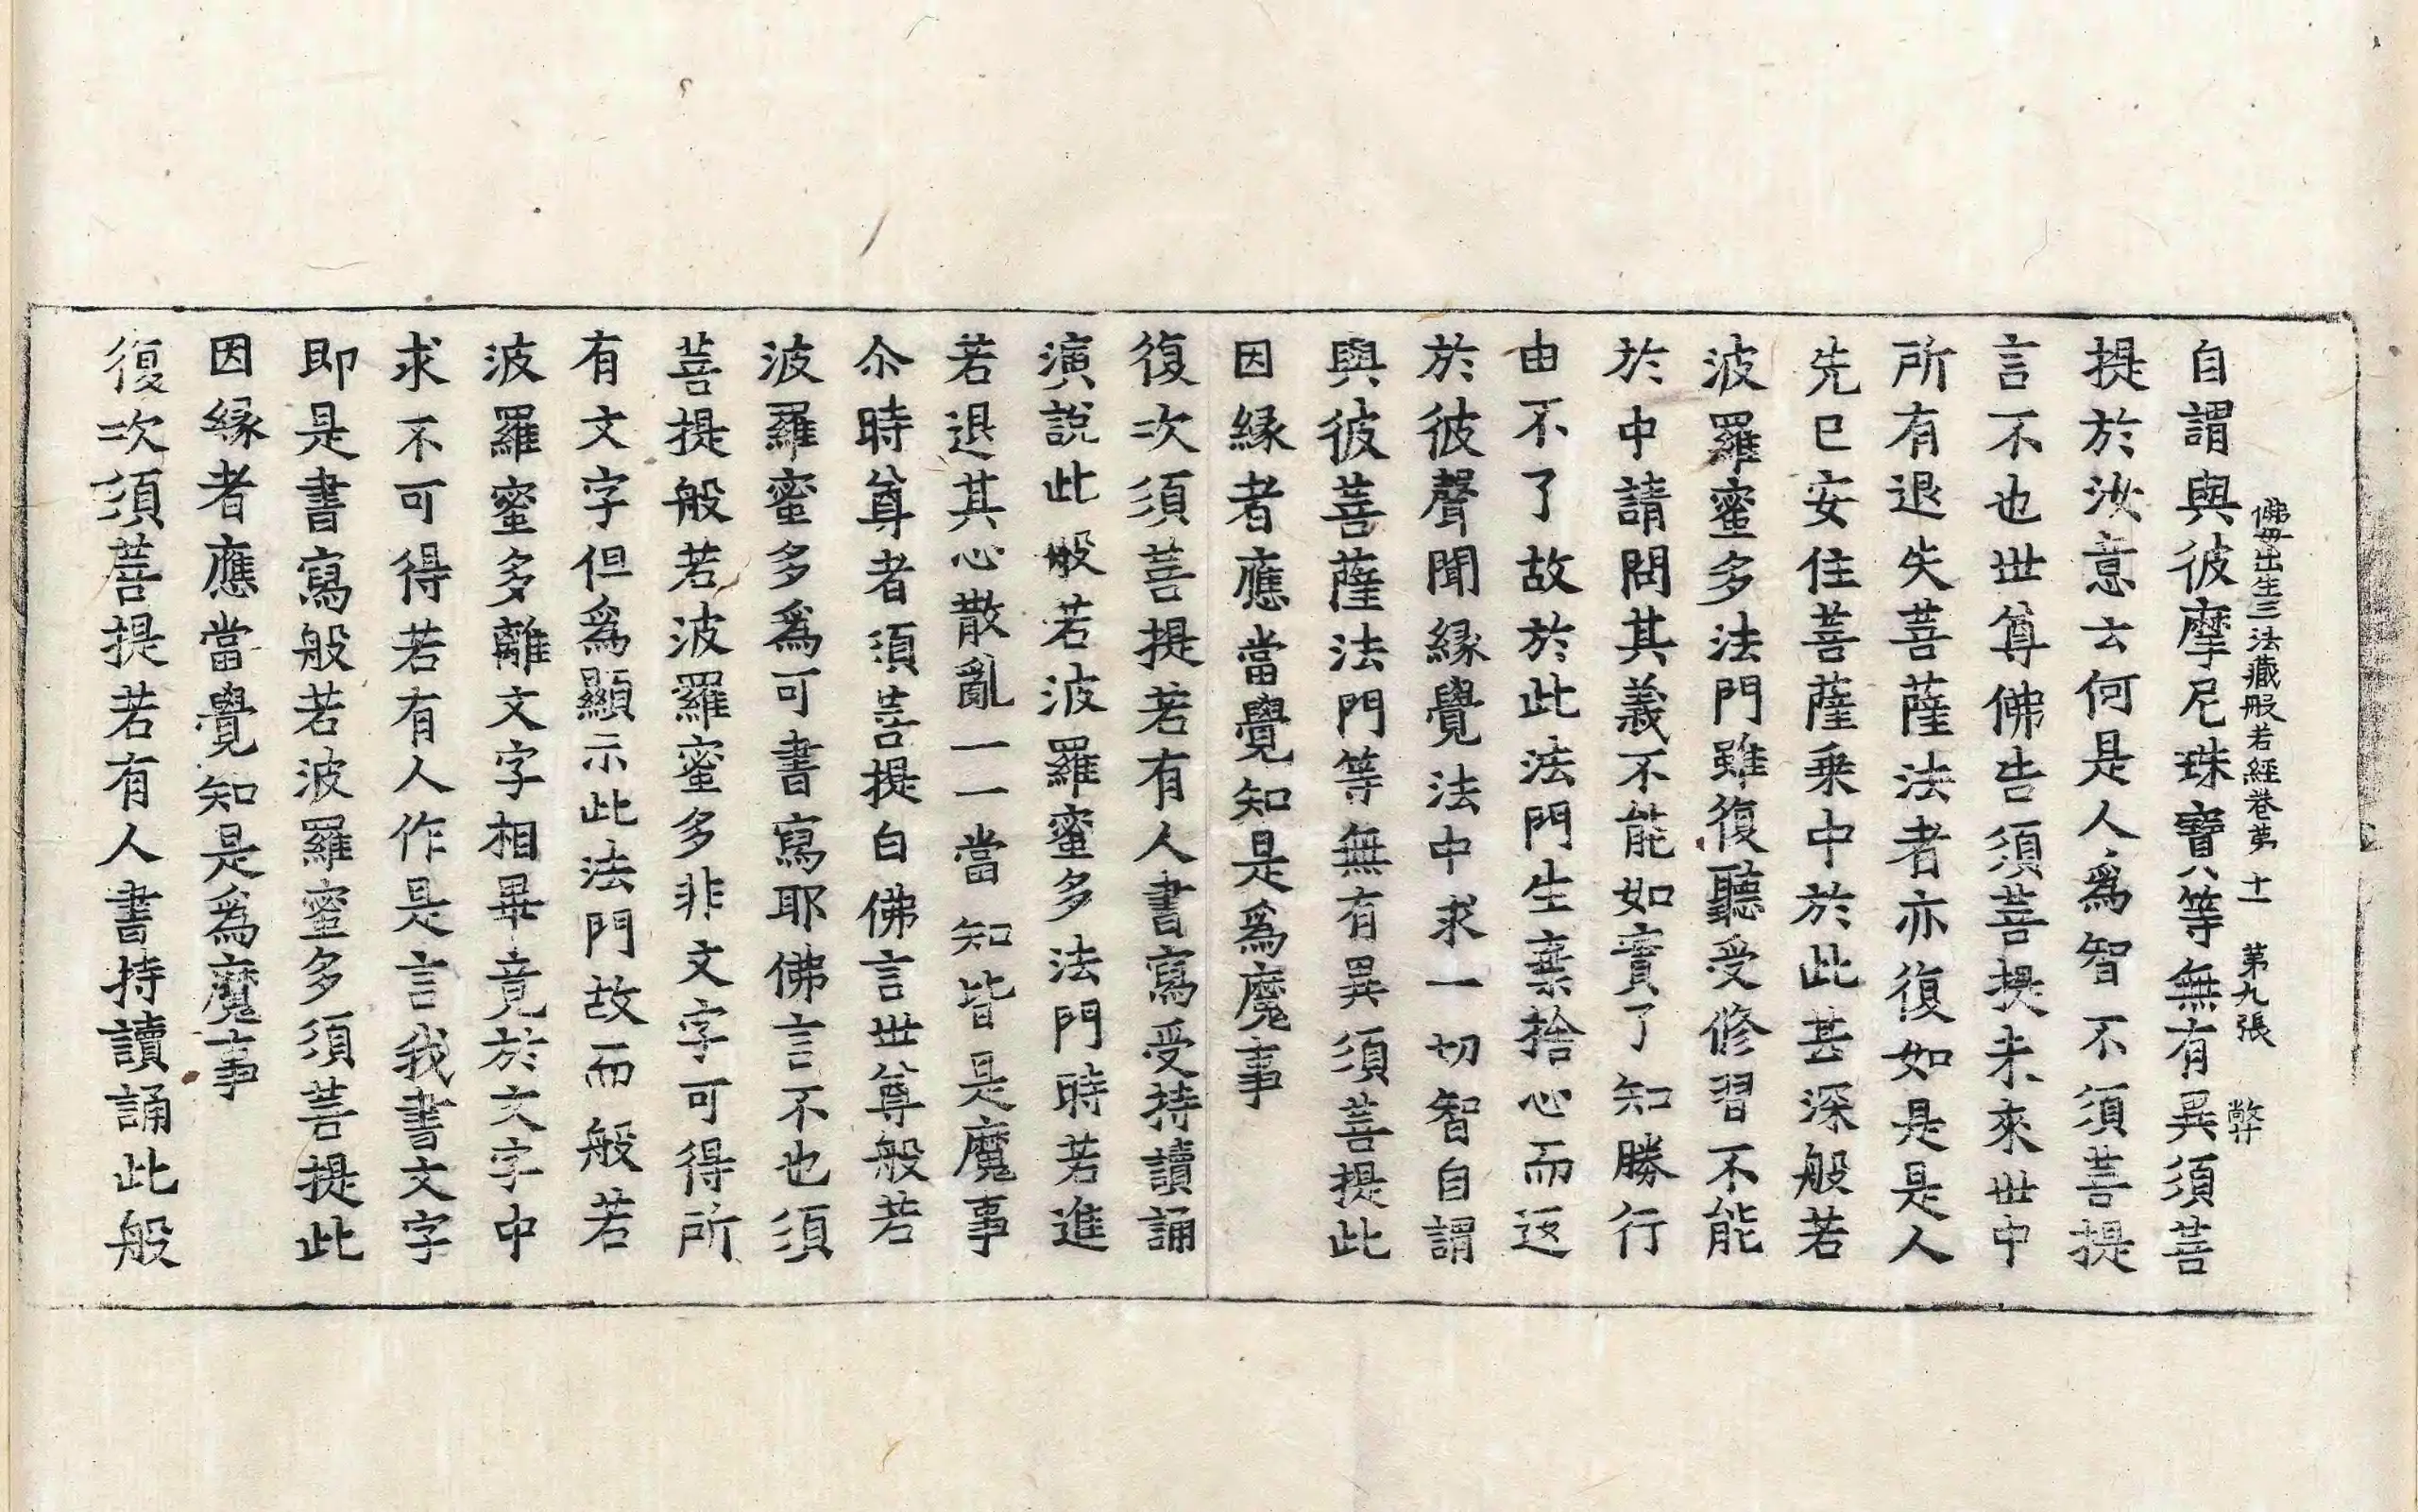 佛母出生三法藏般若經卷苐十一 第九張 弊
自謂與彼摩尼珠寶八等無有異須菩
提於汝意云何是人爲智不須菩提
言不也世尊佛告須菩提未來世中
所有退失菩薩法者亦復如是是人
先已安住菩薩乗中於此甚深般若
波羅蜜多法門雖復聽受修習不能
於中請問其義不能如實了知勝行
由不了故於此法門生棄捨心而返
於彼聲聞緣覺法中求一切智自謂
與彼菩薩法門等無有異須菩提此
因緣者應當覺知是爲魔事
復次須菩提若有人書寫受持讀誦
演說此般若波羅蜜多法門時若進
若退其心散亂一一當知皆是魔事
尒時尊者須菩提白佛言世尊般若
波羅蜜多爲可書寫耶佛言不也須
菩提般若波羅蜜多非文字可得所
有文字但爲顯示此法門故而般若
波羅蜜多離文字相畢竟於文字中
求不可得若有人作是言我書文字
即是書寫般若波羅蜜多須菩提此
因緣者應當覺知是爲魔事
復次須菩提若有人書持讀誦此般